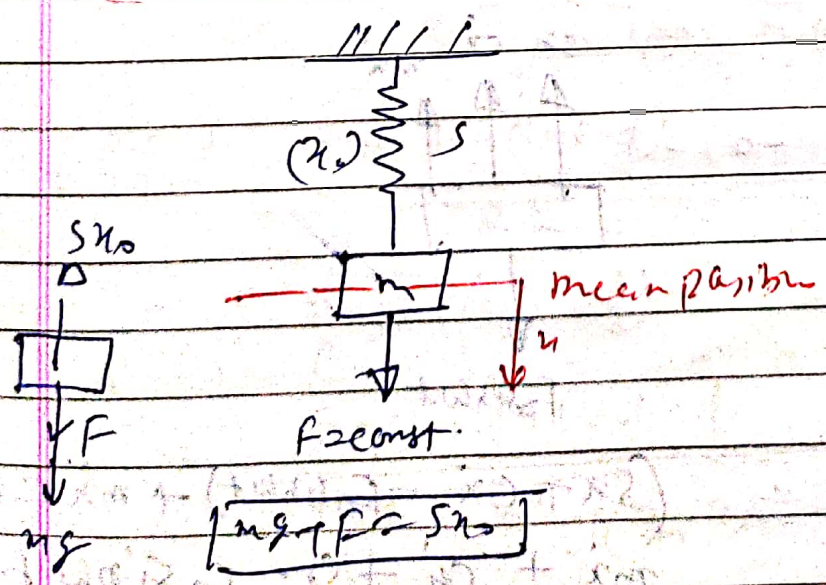 (x₀) S
Sx₀
m
mean position
x
F
F = const.
mg
mg + F = Sx₀